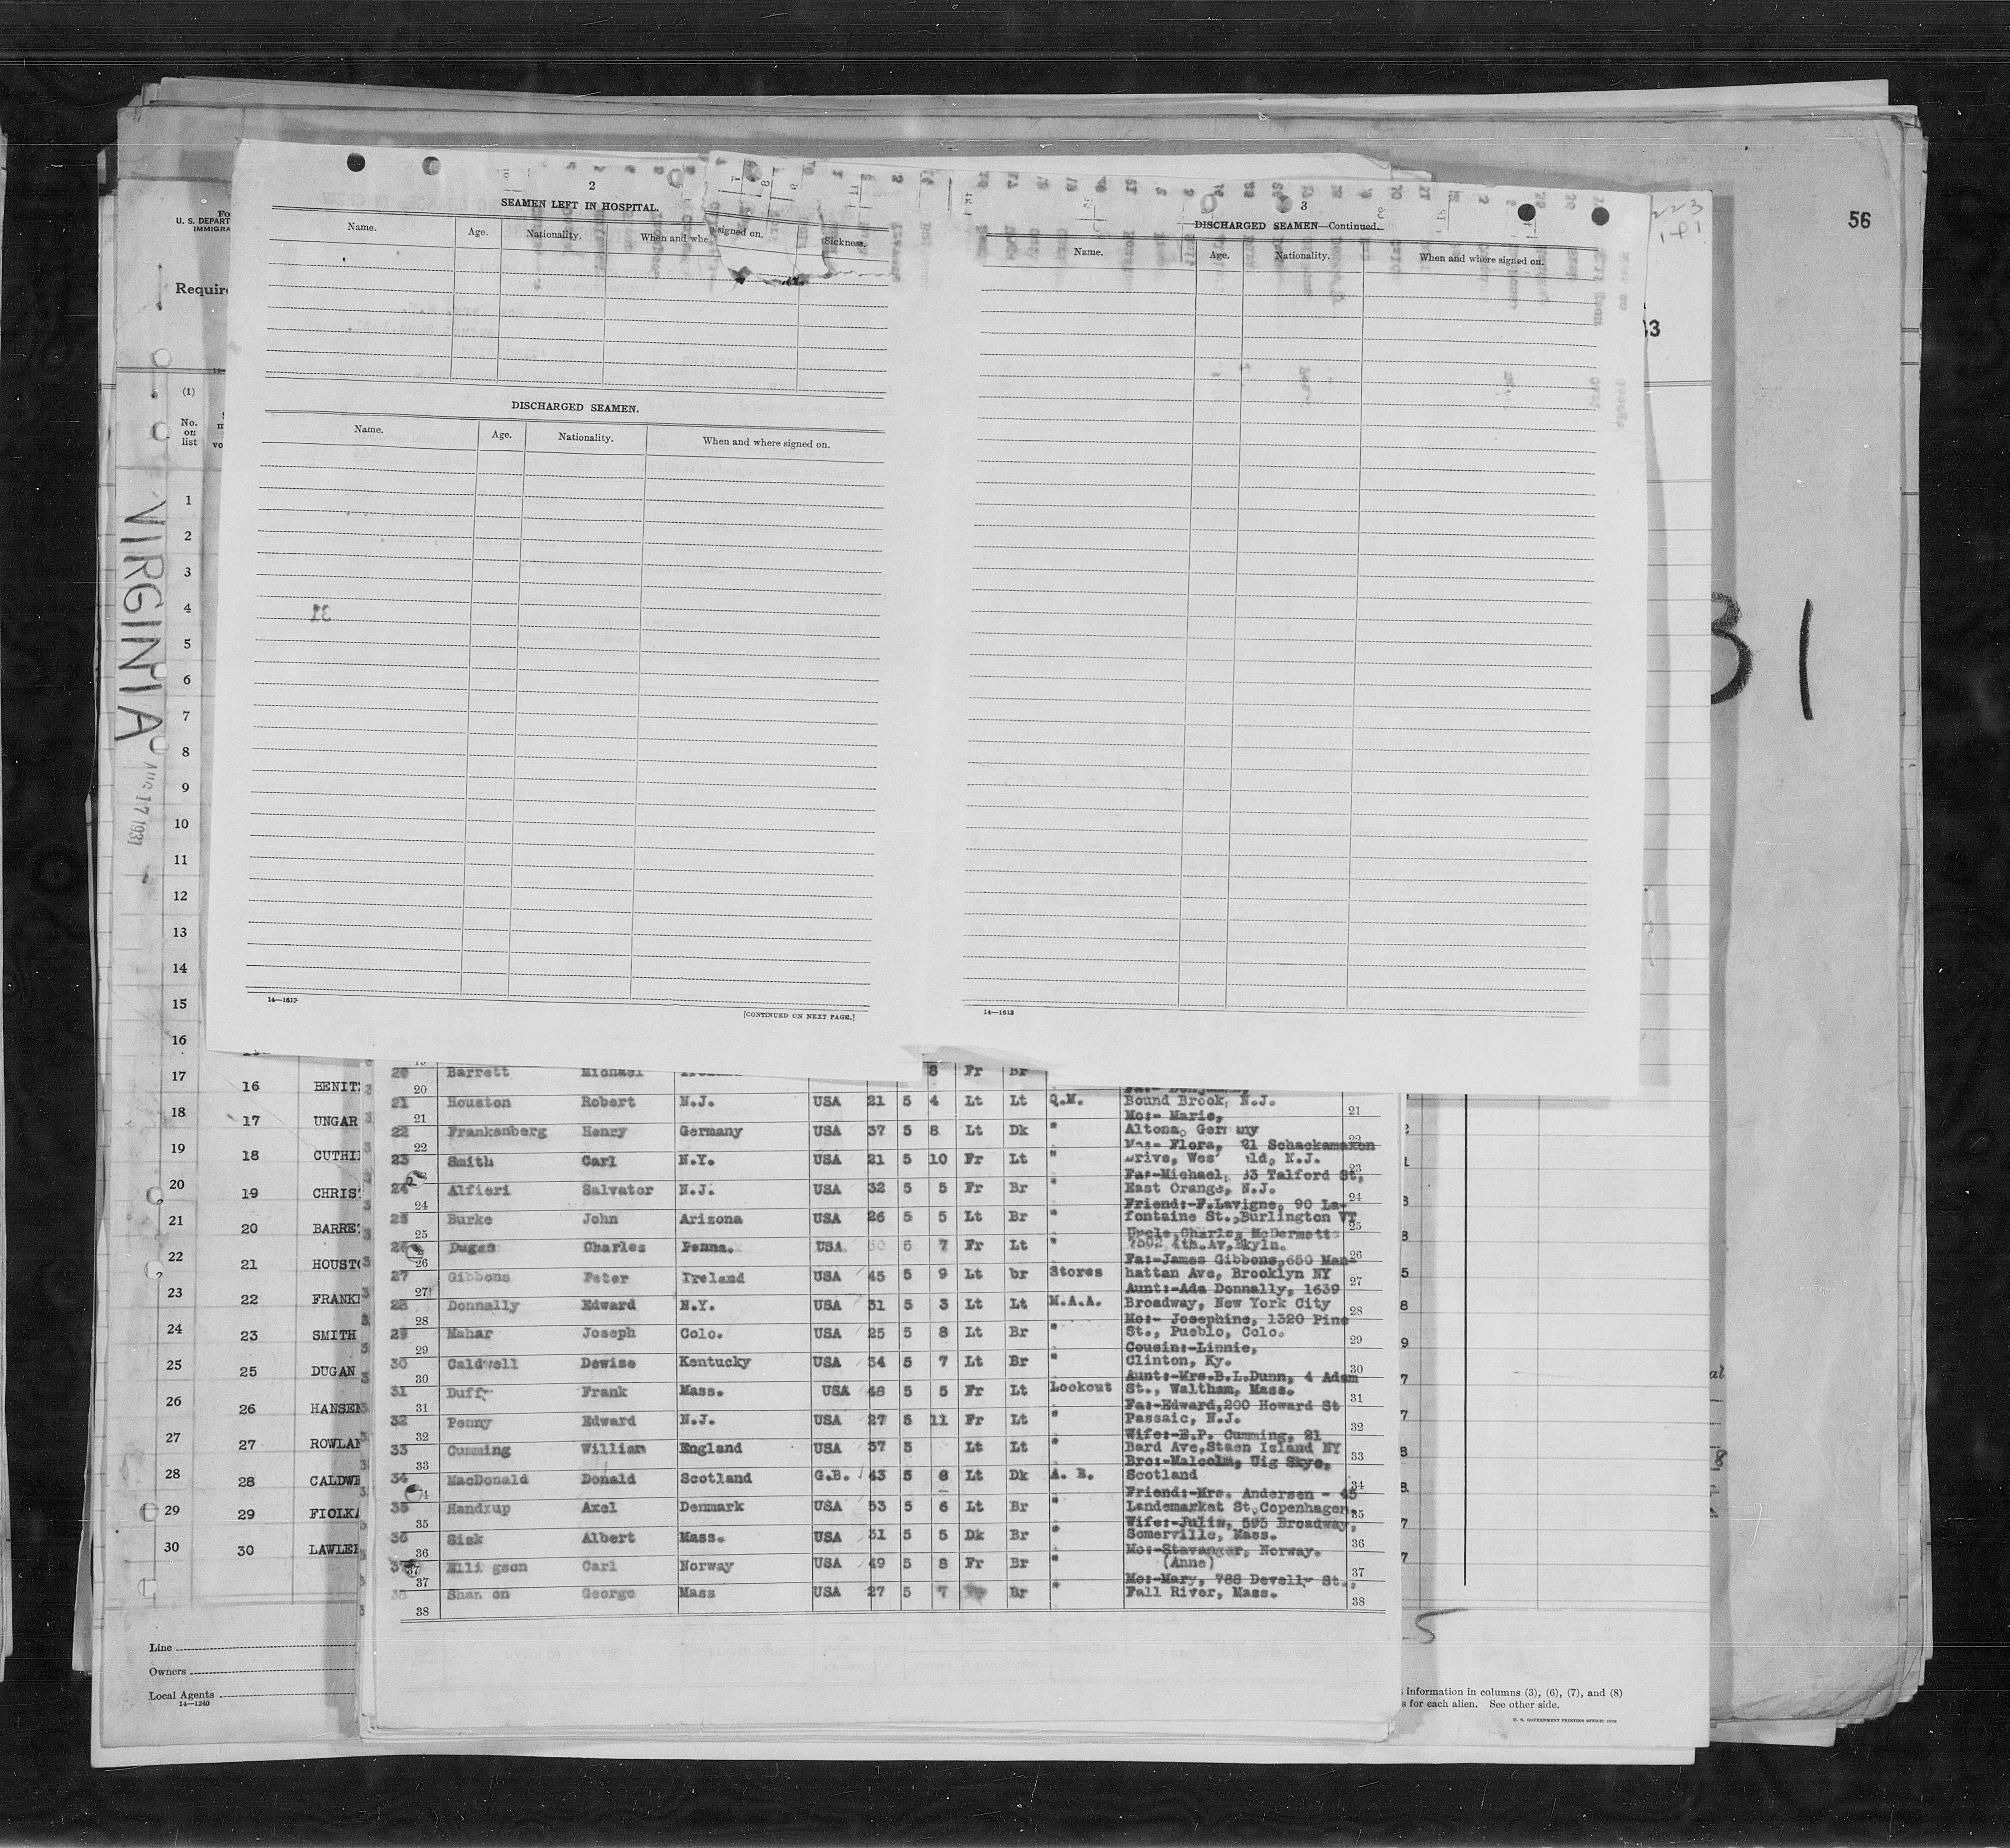 56
2
SEAMEN LEFT IN HOSPITAL.
Name. Age. Nationality. When and whe signed on. Sickness.
DISCHARGED SEAMEN.
Name. Age. Nationality. When and where signed on.
14—1613
[CONTINUED ON NEXT PAGE.]
3
DISCHARGED SEAMEN—Continued.
Name. Age. Nationality. When and where signed on.
14—1613
223
31
Fo
U. S. DEPART
IMMIGRA
Require
(1)
No.
on
list
VIRGINIA
AUG 17 1931
1
2
3
4
5
6
7
8
9
10
11
12
13
14
15
16
17 16 BENIT
18 17 UNGAR
19 18 CUTHI
20 19 CHRIS
21 20 BARRE
22 21 HOUST
23 22 FRANK
24 23 SMITH
25 25 DUGAN
26 26 HANSEN
27 27 ROWLAN
28 28 CALDWE
29 29 FIOLKA
30 30 LAWLER
Line
Owners
Local Agents
14—1240
20 Barrett Michael 8 Fr Br
20
21 Houston Robert N.J. USA 21 5 4 Lt Lt Q.M. Bound Brook, N.J.
21 Mo:- Marie, 21
22 Frankenberg Henry Germany USA 37 5 8 Lt Dk " Altona, Ger uny
22 Flora, 21 Schackamaxon 22
23 Smith Carl N.Y. USA 21 5 10 Fr Lt " Drive, Wes ld, N.J.
Fa:-Michael, 33 Talford St, 23
24 Alfieri Salvator N.J. USA 32 5 5 Fr Br " East Orange, N.J.
24 Friend:-F.Lavigne, 90 La- 24
25 Burke John Arizona USA 26 5 5 Lt Br " fontaine St.,Burlington VT
25 Uncle,Charles McDermott 25
26 Dugan Charles Penna. USA 5 7 Fr Lt " 7502 4th.Av,Bkyln.
26 Fa:-James Gibbons,650 Man- 26
27 Gibbons Peter Ireland USA 45 5 9 Lt br Stores hattan Ave, Brooklyn NY
27 Aunt:-Ada Donnally, 1639 27
28 Donnally Edward N.Y. USA 31 5 3 Lt Lt M.A.A. Broadway, New York City
28 Mo:- Josephine, 1320 Pine 28
29 Mahar Joseph Colo. USA 25 5 8 Lt Br " St., Pueblo, Colo.
29 Cousin:-Linnie, 29
30 Caldwell Dewise Kentucky USA 34 5 7 Lt Br " Clinton, Ky.
30 Aunt:-Mrs.B.L.Dunn, 4 Adam 30
31 Duffy Frank Mass. USA 48 5 5 Fr Lt Lookout St., Waltham, Mass.
31 Fa:-Edward,200 Howard St 31
32 Penny Edward N.J. USA 27 5 11 Fr Lt " Passaic, N.J.
32 Wife:-E.P. Cumming, 21 32
33 Cumming William England USA 37 5 Lt Lt " Bard Ave,Staen Island NY
33 Bro:-Malcolm, Uig Skye, 33
34 MacDonald Donald Scotland G.B. 43 5 8 Lt Dk A. B. Scotland
Friend:-Mrs. Andersen - 45 34
35 Handrup Axel Denmark USA 53 5 6 Lt Br " Landemarket St,Copenhagen,
35 Wife:-Julia, 595 Broadway, 35
36 Sisk Albert Mass. USA 31 5 5 Dk Br " Somerville, Mass.
36 Mo:-Stavanger, Norway. 36
37 Elli gson Carl Norway USA 49 5 8 Fr Br " (Anne)
37 Mo:-Mary, 788 Develly St., 37
Shan on George Mass USA 27 5 7 Br " Fall River, Mass.
38 38
information in columns (3), (6), (7), and (8)
s for each alien. See other side.
U. S. GOVERNMENT PRINTING OFFICE